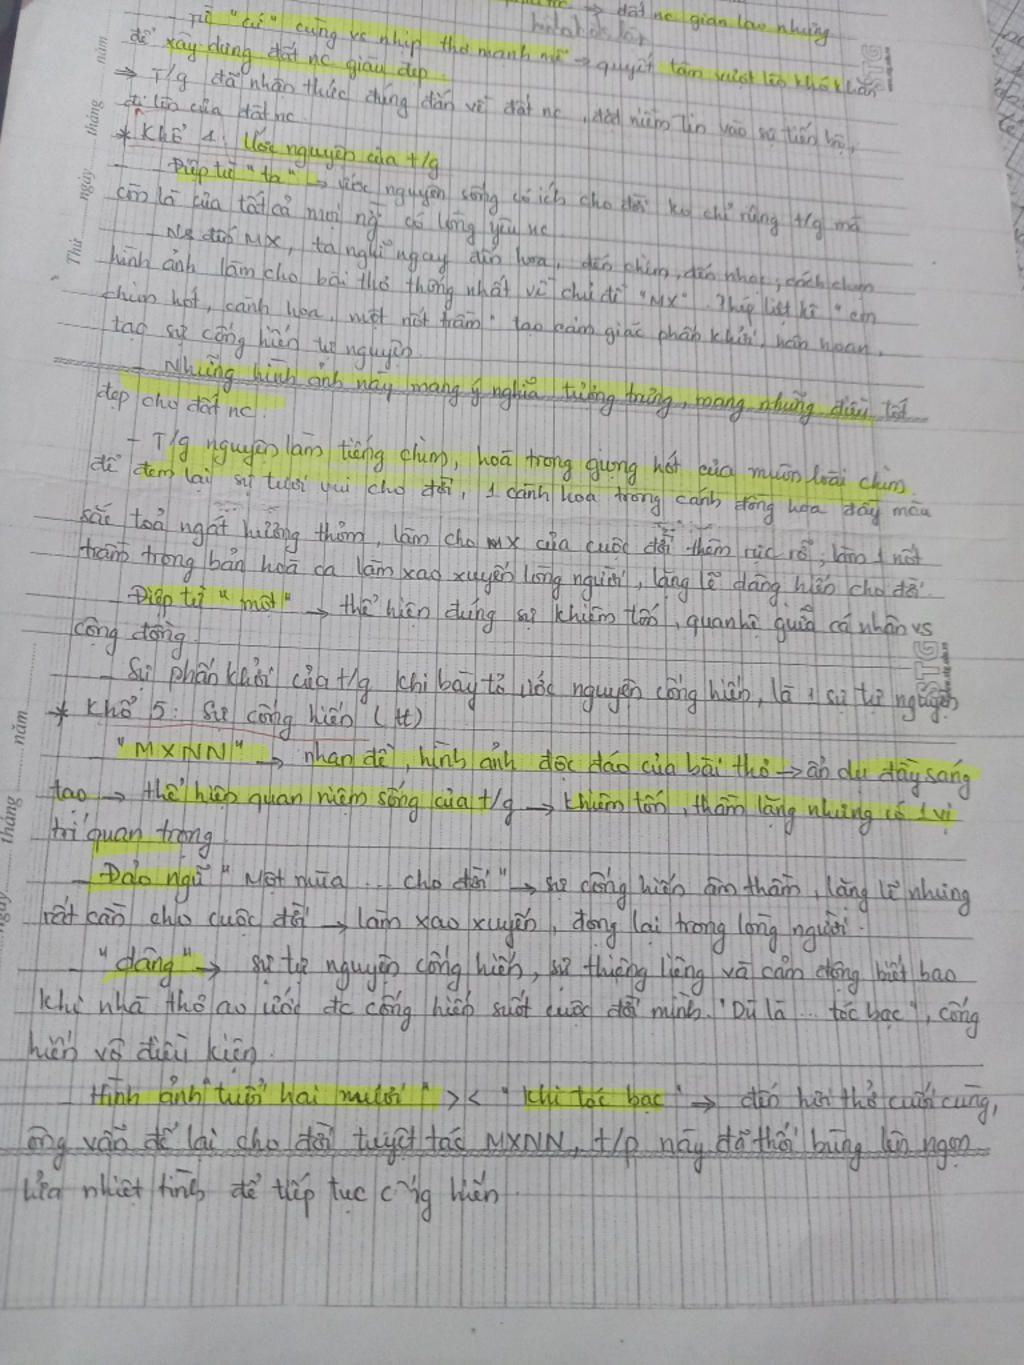 → đất nc gian lao nhưng
- Từ "cứ" cùng vs nhịp thơ mạnh mẽ → quyết tâm vượt lên khó khăn
để xây dựng đất nc giàu đẹp.
⇒ T/g đã nhận thức đúng đắn về đất nc, đặt niềm tin vào sự tiến bộ,
đi lên của đất nc
* Khổ 4: Ước nguyện của t/g
- Điệp từ "ta" → ước nguyện sống có ích cho đời ko chỉ riêng t/g mà
còn là của tất cả mọi ng` có lòng yêu nc
- Ns đến MX, ta nghĩ ngay đến hoa, đến chim, đến nhạc, cách chọn
hình ảnh làm cho bài thơ thống nhất về chủ đề "MX". Phép liệt kê "con
chim hót, cành hoa, một nốt trầm" tạo cảm giác phấn khởi, hân hoan,
tạo sự cống hiến tự nguyện.
- Những hình ảnh này mang ý nghĩa tượng trưng, mang những điều tốt
đẹp cho đất nc.
- T/g nguyện làm tiếng chim, hoà trong giọng hót của muôn loài chim
để đem lại sự tươi vui cho đời, 1 cành hoa trong cánh đồng hoa đầy màu
sắc toả ngát hương thơm, làm cho MX của cuộc đời thêm rực rỡ, làm 1 nốt
trầm trong bản hoà ca làm xao xuyến lòng người, lặng lẽ dâng hiến cho đời.
- Điệp từ "một" → thể hiện đúng sự khiêm tốn, quan hệ giữa cá nhân vs
cộng đồng.
- Sự phấn khởi của t/g khi bày tỏ ước nguyện cống hiến, là 1 sự tự nguyện
* Khổ 5: Sự cống hiến (tt)
"MXNN" → nhan đề, hình ảnh độc đáo của bài thơ → ẩn dụ đầy sáng
tạo → thể hiện quan niệm sống của t/g → khiêm tốn, thầm lặng nhưng có 1 vị
trí quan trọng
- Đảo ngữ "Một mùa ... cho đời" → sự cống hiến âm thầm, lặng lẽ nhưng
rất cần cho cuộc đời → làm xao xuyến, đọng lại trong lòng người.
- "dâng" → sự tự nguyện cống hiến, sự thiêng liêng và cảm động biết bao
khi nhà thơ ao ước đc cống hiến suốt cuộc đời mình. "Dù là ... tóc bạc", cống
hiến vô điều kiện.
- Hình ảnh "tuổi hai mươi" >< "khi tóc bạc" → đến hơi thở cuối cùng,
ông vẫn để lại cho đời tuyệt tác MXNN, t/p này đã thổi bùng lên ngọn
lửa nhiệt tình để tiếp tục cống hiến
Thứ ...... ngày ...... tháng ...... năm
ngày ...... tháng ...... năm